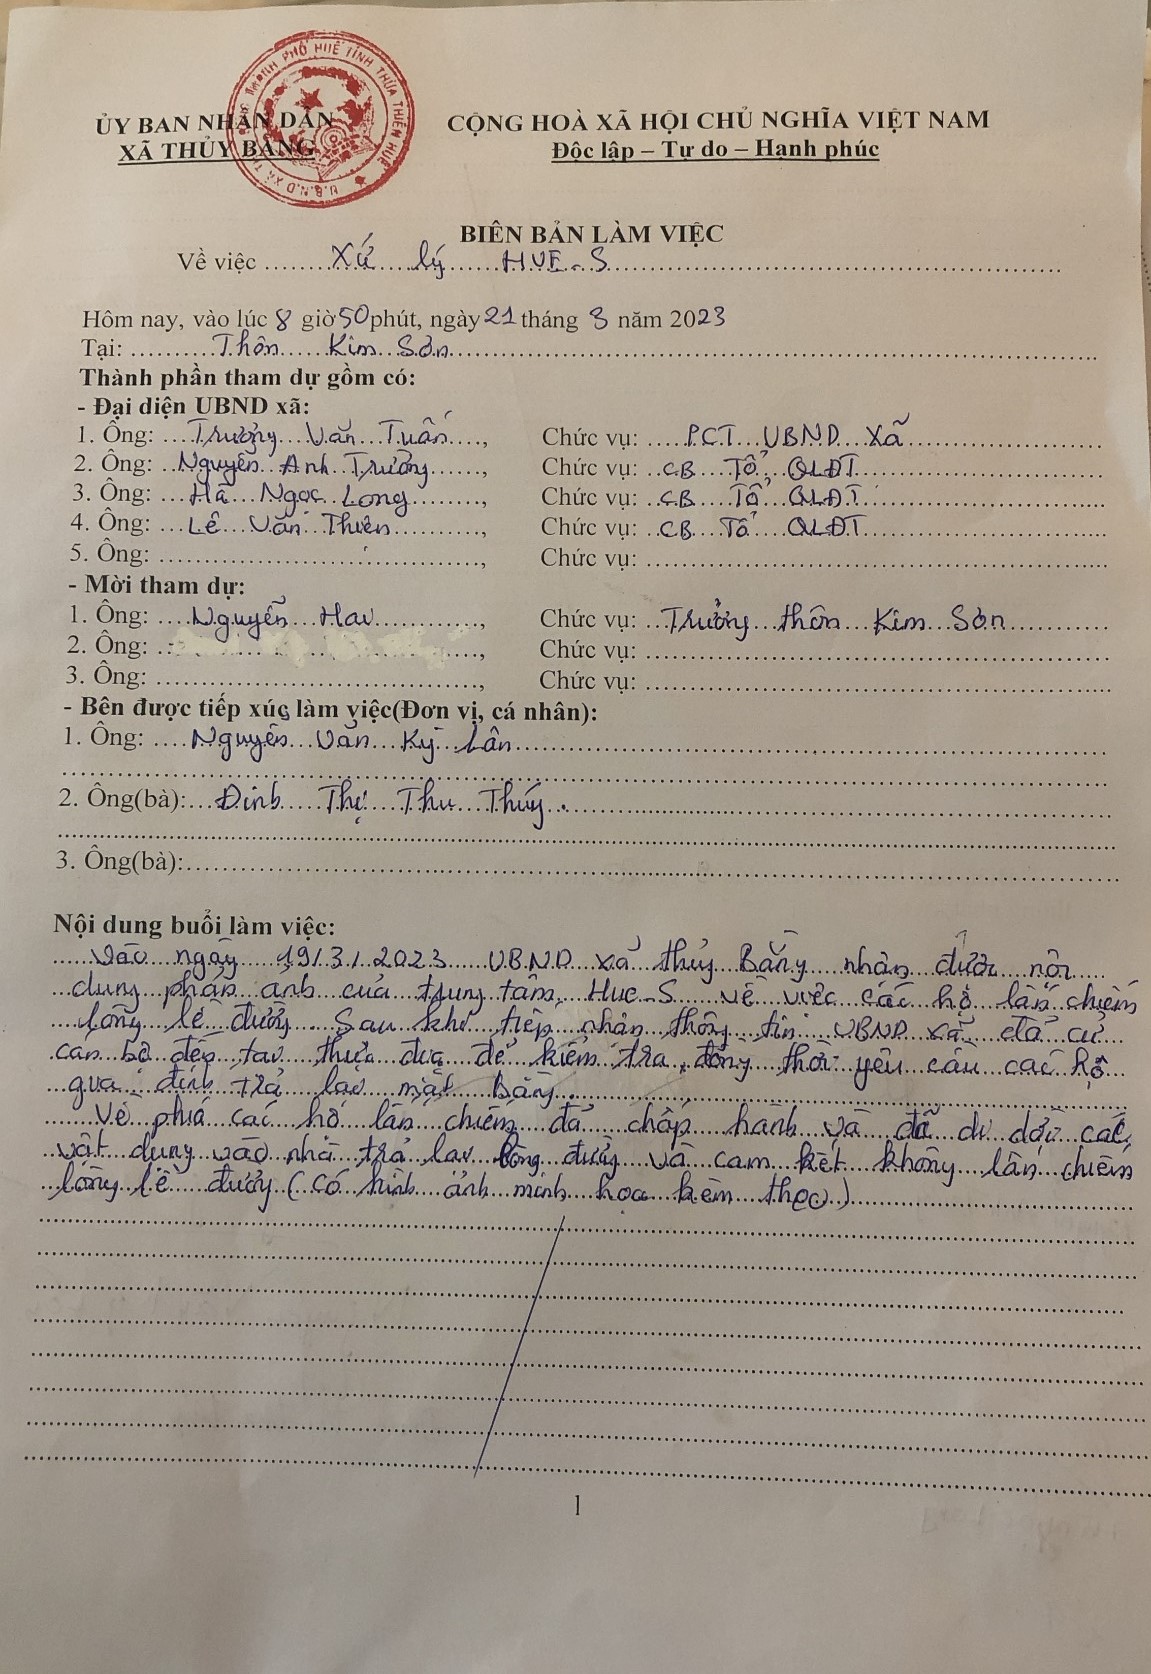 ỦY BAN NHÂN DÂN
XÃ THỦY BẰNG
CỘNG HOÀ XÃ HỘI CHỦ NGHĨA VIỆT NAM
Độc lập – Tự do – Hạnh phúc
THÀNH PHỐ HUẾ TỈNH THỪA THIÊN HUẾ
U.B.N.D XÃ
BIÊN BẢN LÀM VIỆC
Về việc Xử lý HUE-S
Hôm nay, vào lúc 8 giờ 50 phút, ngày 21 tháng 3 năm 2023
Tại: Thôn Kim Sơn
Thành phần tham dự gồm có:
- Đại diện UBND xã:
1. Ông: Trương Văn Tuấn, Chức vụ: PCT UBND Xã
2. Ông: Nguyễn Anh Trường, Chức vụ: CB Tổ QLĐT
3. Ông: Hà Ngọc Long, Chức vụ: CB Tổ QLĐT
4. Ông: Lê Văn Thiên, Chức vụ: CB Tổ QLĐT
5. Ông: , Chức vụ:
- Mời tham dự:
1. Ông: Nguyễn Hai, Chức vụ: Trưởng thôn Kim Sơn
2. Ông: , Chức vụ:
3. Ông: , Chức vụ:
- Bên được tiếp xúc làm việc(Đơn vị, cá nhân):
1. Ông: Nguyễn Văn Kỳ Lân
2. Ông(bà): Đinh Thị Thu Thúy.
3. Ông(bà):
Nội dung buổi làm việc:
Vào ngày 19/3/2023 UBND xã Thủy Bằng nhận được nội
dung phản ánh của trung tâm Hue-S về việc các hộ lấn chiếm
lòng lề đường. Sau khi tiếp nhận thông tin UBND xã đã cử
cán bộ đến tại thực địa để kiểm tra, đồng thời yêu cầu các hộ
gia đình trả lại mặt bằng.
Về phía các hộ lấn chiếm đã chấp hành và đã di dời các
vật dụng vào nhà trả lại lòng đường và cam kết không lấn chiếm
lòng lề đường (có hình ảnh minh họa kèm theo)
1